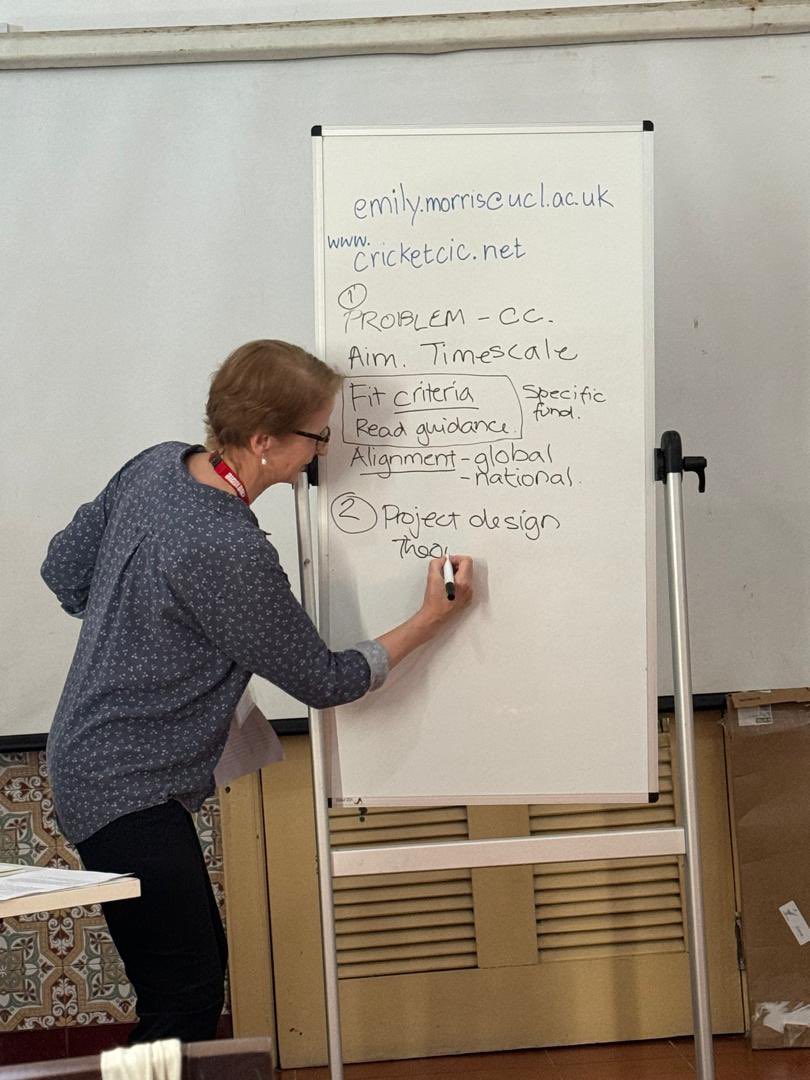 emily.morris@ucl.ac.uk
www.
cricketcic.net
1
PROBLEM - CC.
Aim. Timescale
Fit criteria
Read guidance.
Specific
fund.
Alignment - global
- national.
2 Project design
Theo